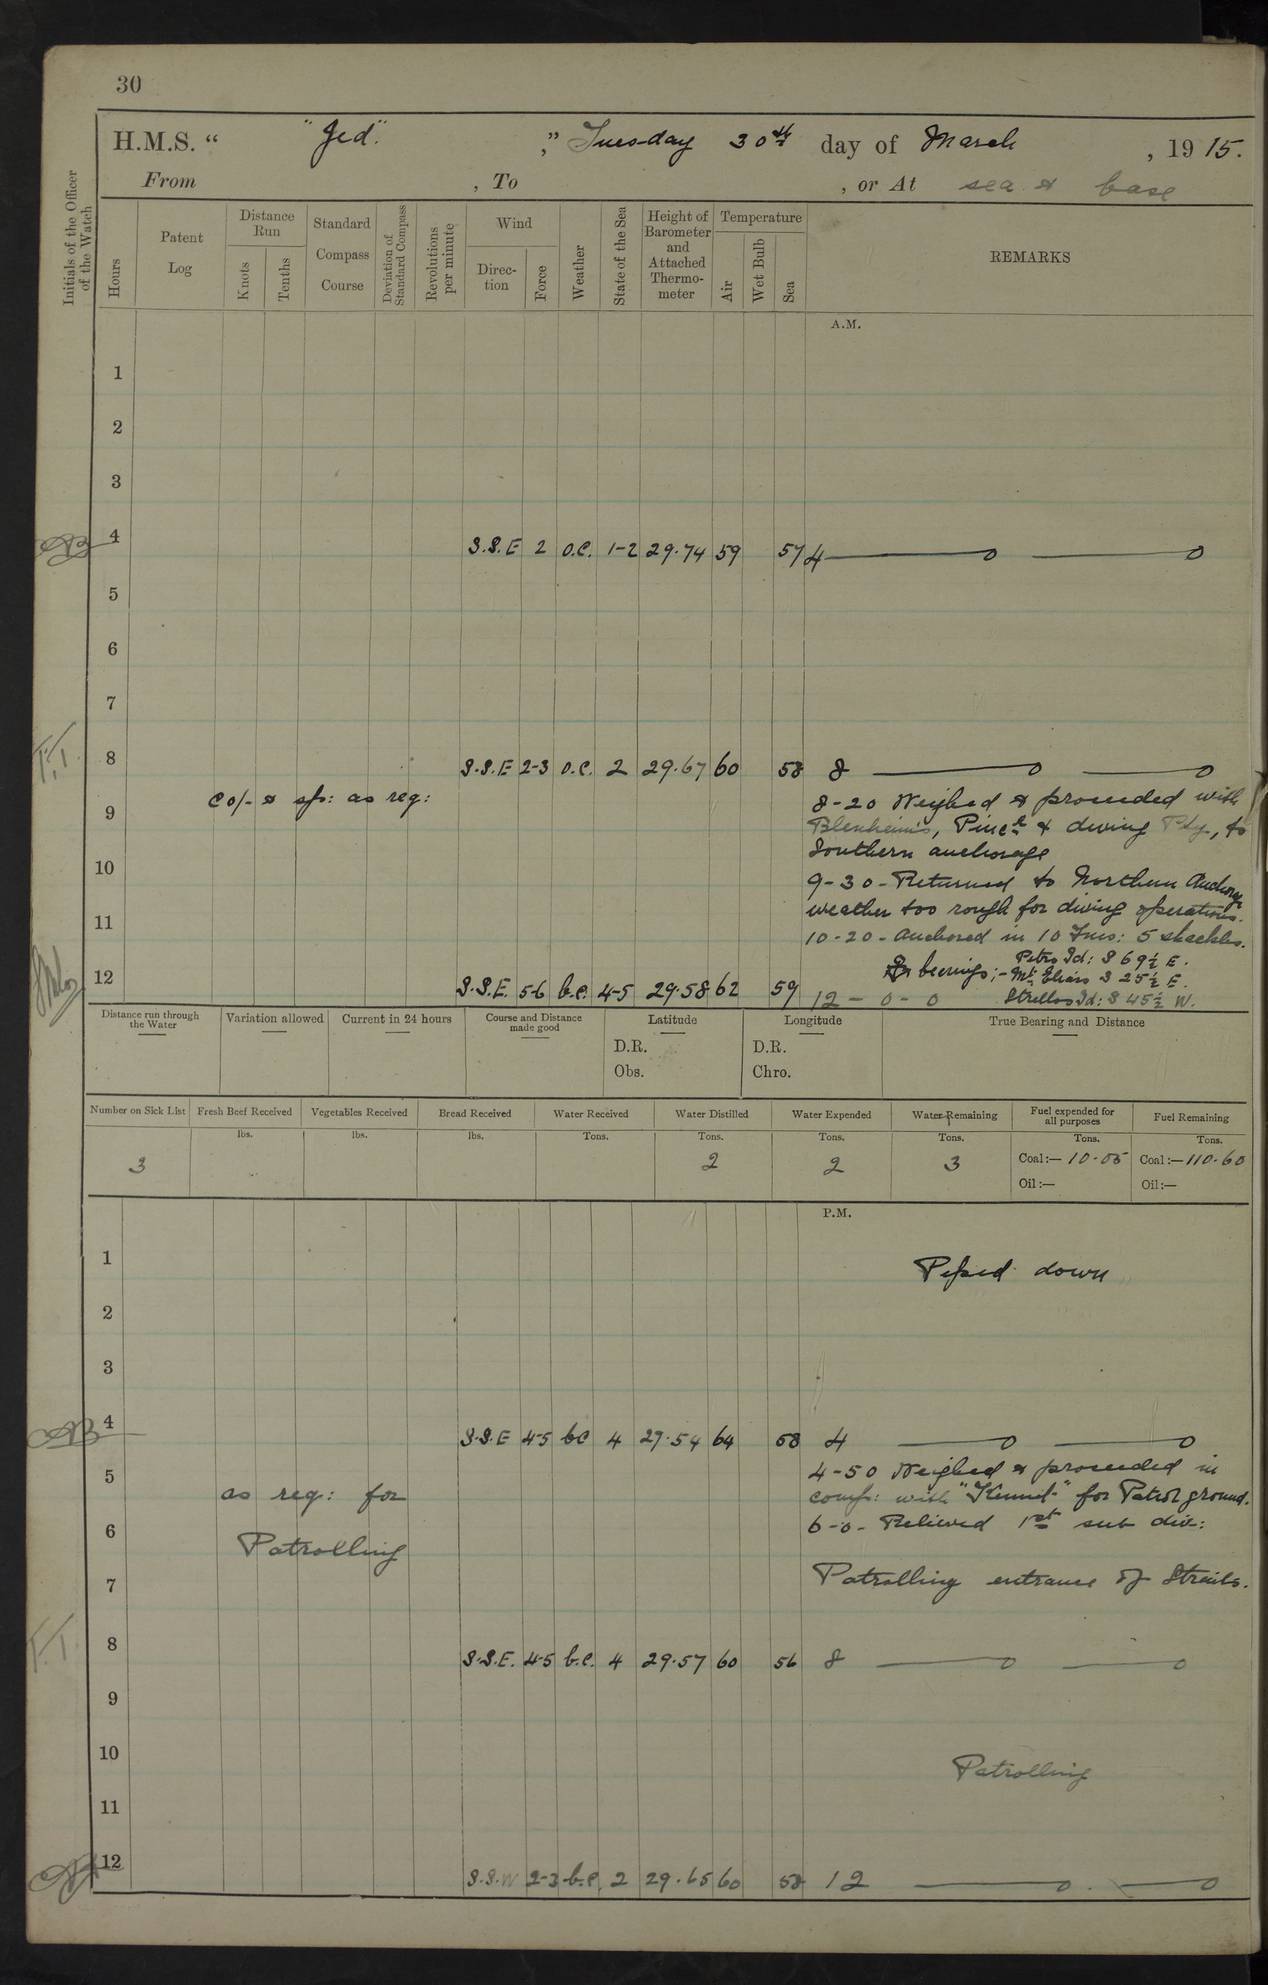 30
H.M.S. “ "Jed". ,” Tuesday 30th day of March , 1915.
From , To , or At sea & base
Initials of the Officer of the Watch
Hours
Patent Log
Distance Run
Knots
Tenths
Standard Compass Course
Deviation of Standard Compass
Revolutions per minute
Wind
Direction
Force
Weather
State of the Sea
Height of Barometer and Attached Thermometer
Temperature
Air
Wet Bulb
Sea
REMARKS
A.M.
1
2
3
4 S.S.E 2 o.c. 1-2 29.74 59 57 4 —o —o
5
6
7
F.T. 8 S.S.E 2-3 o.c. 2 29.67 60 58 8 —o —o
co/- & sp: as req:
9 8-20 Weighed & proceeded with
Blenheim's, Pince & diving Pty, to
Southern anchorage
10 9-30 - Returned to Northern Anchorage
weather too rough for diving operations.
11 10-20 - Anchored in 10 Fms: 5 shackles.
bearings;- Petro Id: S 69½ E.
Mt Elias S 25½ E.
12 S.S.E. 5-6 b.c. 4-5 29.58 62 59 12 - o - o Strellos Id: S 45½ W.
Distance run through the Water
Variation allowed
Current in 24 hours
Course and Distance made good
Latitude
Longitude
True Bearing and Distance
D.R. D.R.
Obs. Chro.
Number on Sick List
Fresh Beef Received
Vegetables Received
Bread Received
Water Received
Water Distilled
Water Expended
Water Remaining
Fuel expended for all purposes
Fuel Remaining
lbs. lbs. lbs. Tons. Tons. Tons. Tons. Tons. Tons.
3 2 2 3 Coal:— 10.05 Coal:— 110.60
Oil:— Oil:—
P.M.
1 Piped down
2
3
4 S.S.E 4-5 bc 4 29.54 64 58 4 —o —o
5 4-50 Weighed & proceeded in
as req: for comp: with "Kennet" for Patrol ground.
6 6-0- Relieved 1st sub div:
Patrolling
7 Patrolling entrance of Straits.
F.T. 8 S.S.E. 4-5 b.c. 4 29.57 60 56 8 —o —o
9
10 Patrolling
11
12 S.S.W 2-3 b.c. 2 29.65 60 58 12 —o —o